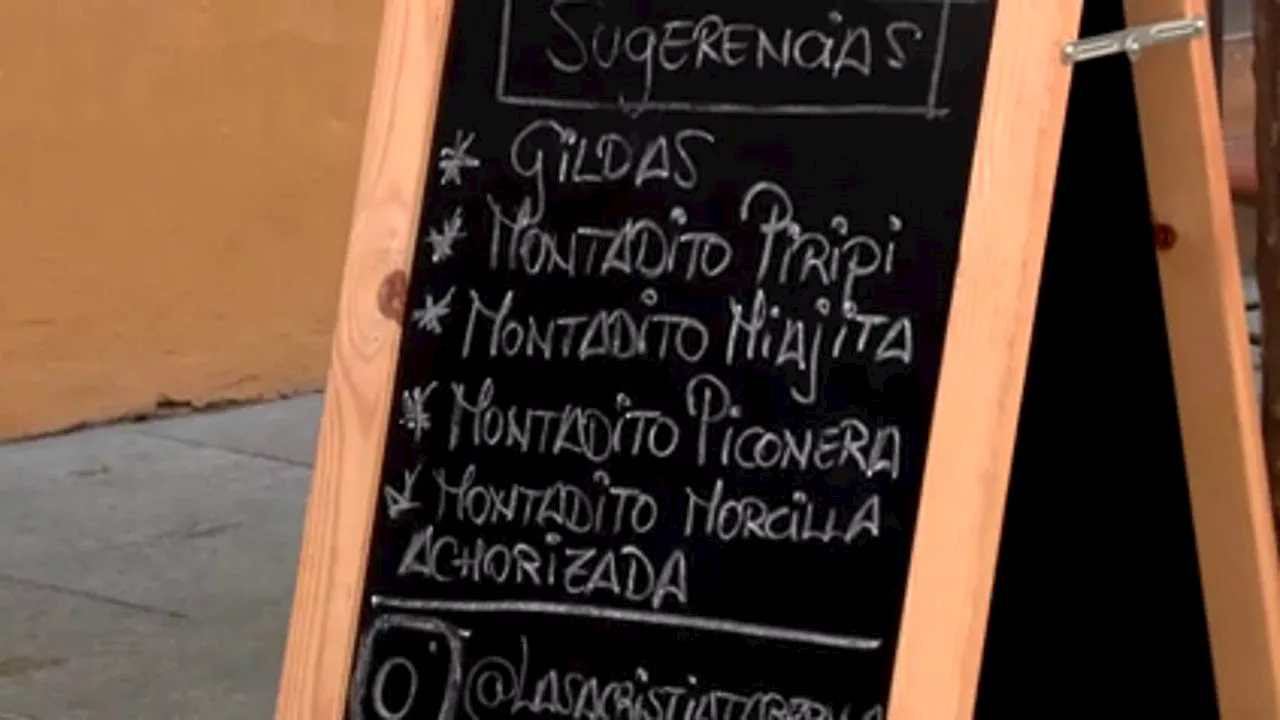 SUGERENCIAS
* GILDAS
* MONTADITO PIRIPI
* MONTADITO MIAJITA
* MONTADITO PICONERA
* MONTADITO MORCILLA
ACHORIZADA